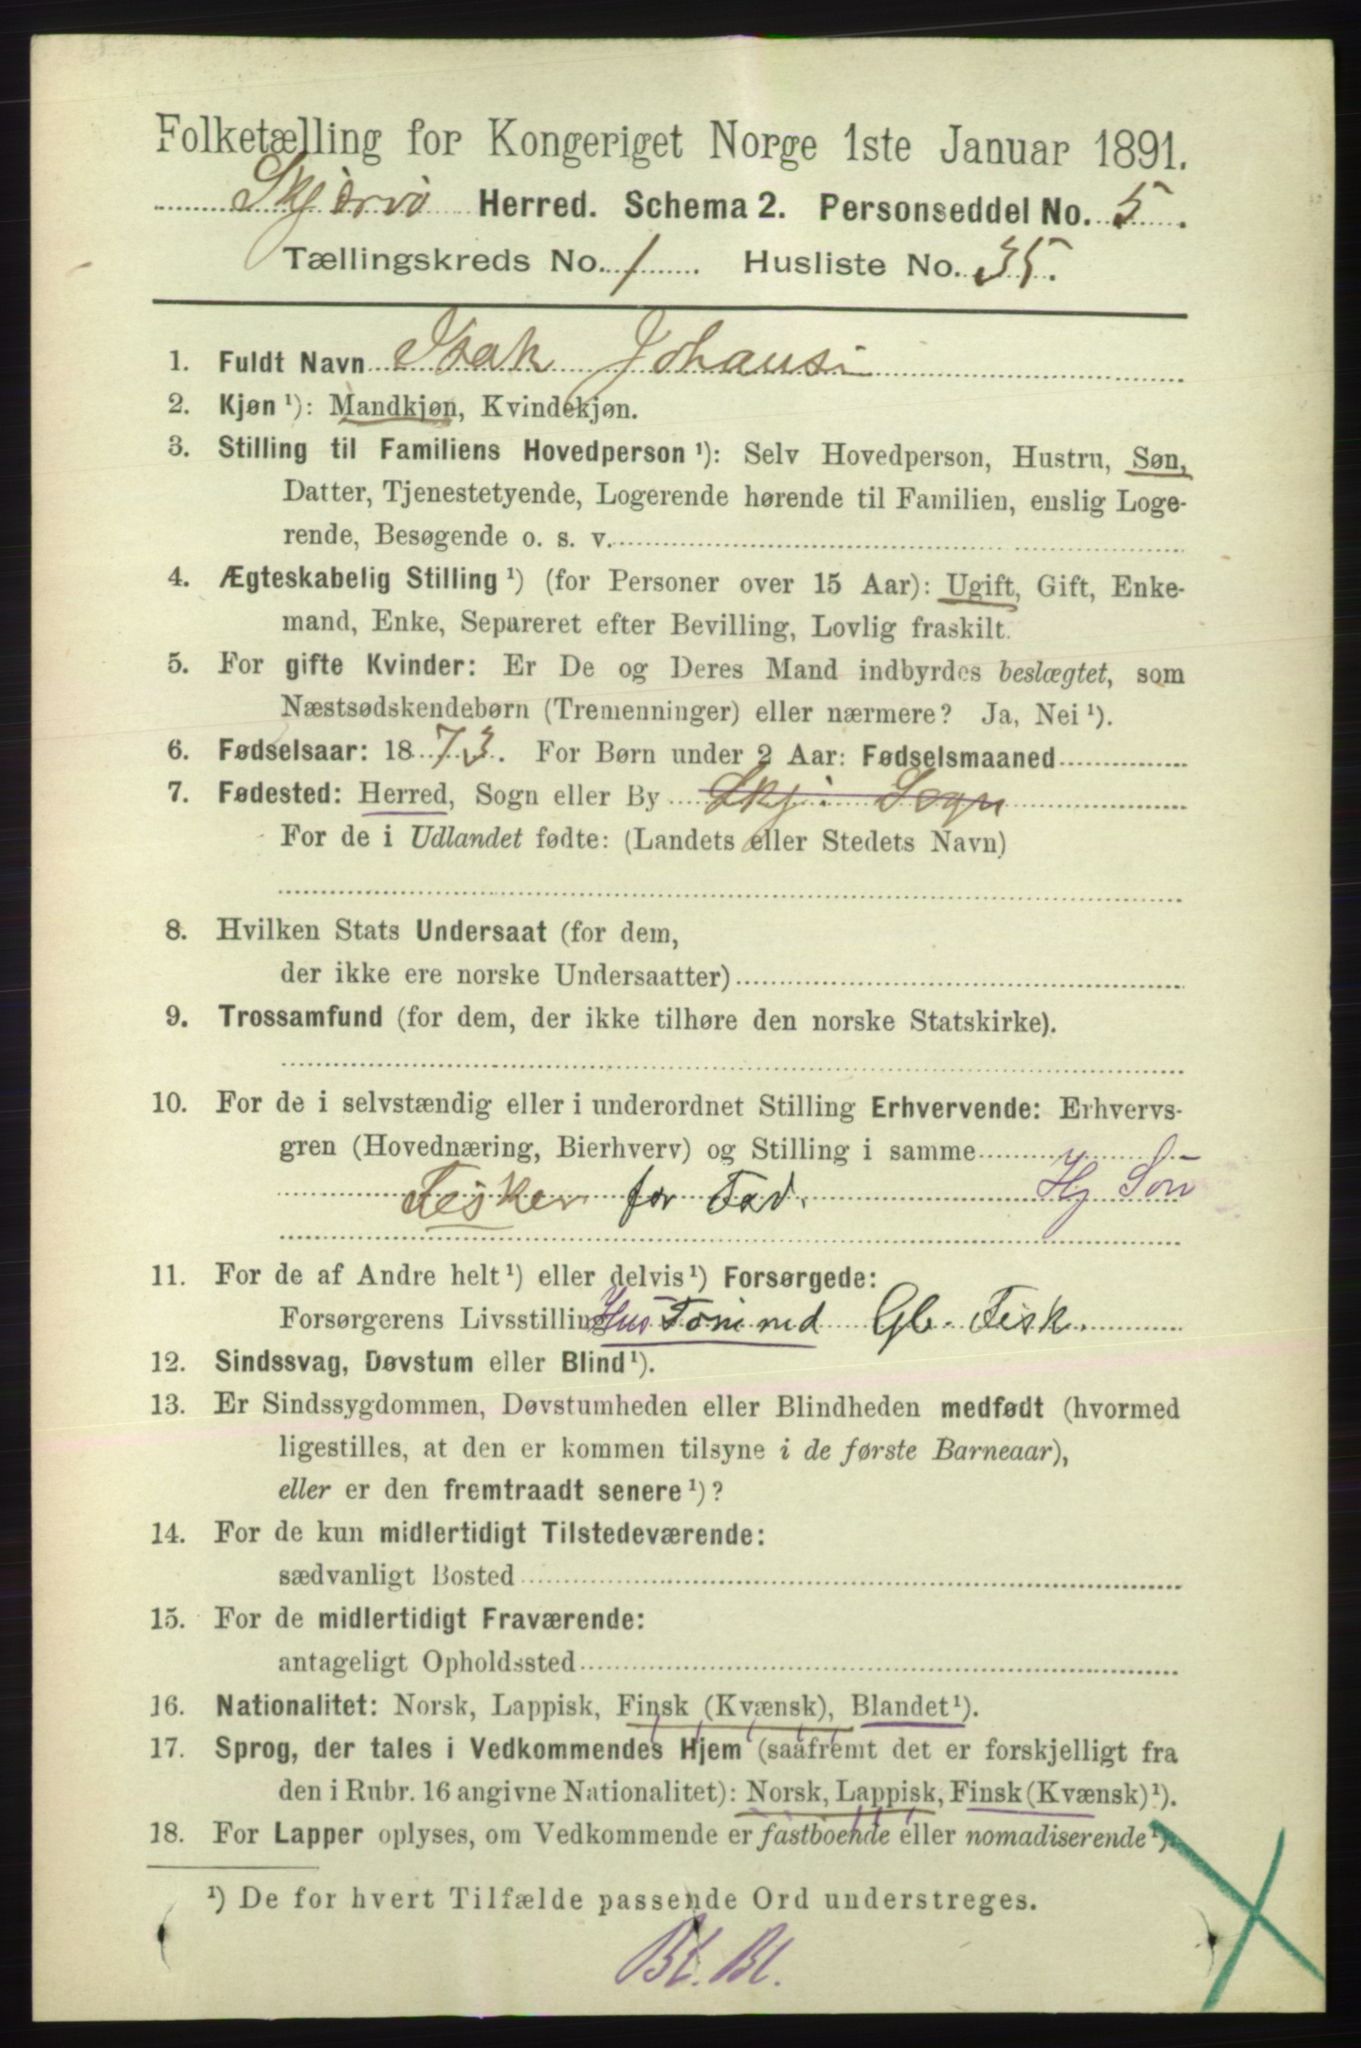 Folketælling for Kongeriget Norge 1ste Januar 1891.
Skjærvø Herred. Schema 2. Personseddel No. 5.
Tællingskreds No. 1. Husliste No. 35.
1. Fuldt Navn Isak Johansi
2. Kjøn ¹): Mandkjøn, Kvindekjøn.
3. Stilling til Familiens Hovedperson ¹): Selv Hovedperson, Hustru, Søn,
Datter, Tjenestetyende, Logerende hørende til Familien, enslig Loge-
rende, Besøgende o. s. v.
4. Ægteskabelig Stilling ¹) (for Personer over 15 Aar): Ugift, Gift, Enke-
mand, Enke, Separeret efter Bevilling, Lovlig fraskilt.
5. For gifte Kvinder: Er De og Deres Mand indbyrdes beslægtet, som
Næstsødskendebørn (Tremenninger) eller nærmere? Ja, Nei ¹).
6. Fødselsaar: 1873. For Børn under 2 Aar: Fødselsmaaned
7. Fødested: Herred, Sogn eller By Skj: Sogn
For de i Udlandet fødte: (Landets eller Stedets Navn)
8. Hvilken Stats Undersaat (for dem,
der ikke ere norske Undersaatter)
9. Trossamfund (for dem, der ikke tilhøre den norske Statskirke).
10. For de i selvstændig eller i underordnet Stilling Erhvervende: Erhvervs-
gren (Hovednæring, Bierhverv) og Stilling i samme
Fisker for Fad. Hj Søn
11. For de af Andre helt ¹) eller delvis ¹) Forsørgede:
Forsørgerens Livsstilling Hus Gb. Fisk.
12. Sindssvag, Døvstum eller Blind ¹).
13. Er Sindssygdommen, Døvstumheden eller Blindheden medfødt (hvormed
ligestilles, at den er kommen tilsyne i de første Barneaar),
eller er den fremtraadt senere ¹)?
14. For de kun midlertidigt Tilstedeværende:
sædvanligt Bosted
15. For de midlertidigt Fraværende:
antageligt Opholdssted
16. Nationalitet: Norsk, Lappisk, Finsk (Kvænsk), Blandet ¹).
17. Sprog, der tales i Vedkommendes Hjem (saafremt det er forskjelligt fra
den i Rubr. 16 angivne Nationalitet): Norsk, Lappisk, Finsk (Kvænsk) ¹).
18. For Lapper oplyses, om Vedkommende er fastboende eller nomadiserende ¹).
¹) De for hvert Tilfælde passende Ord understreges.
Bl. Bl.